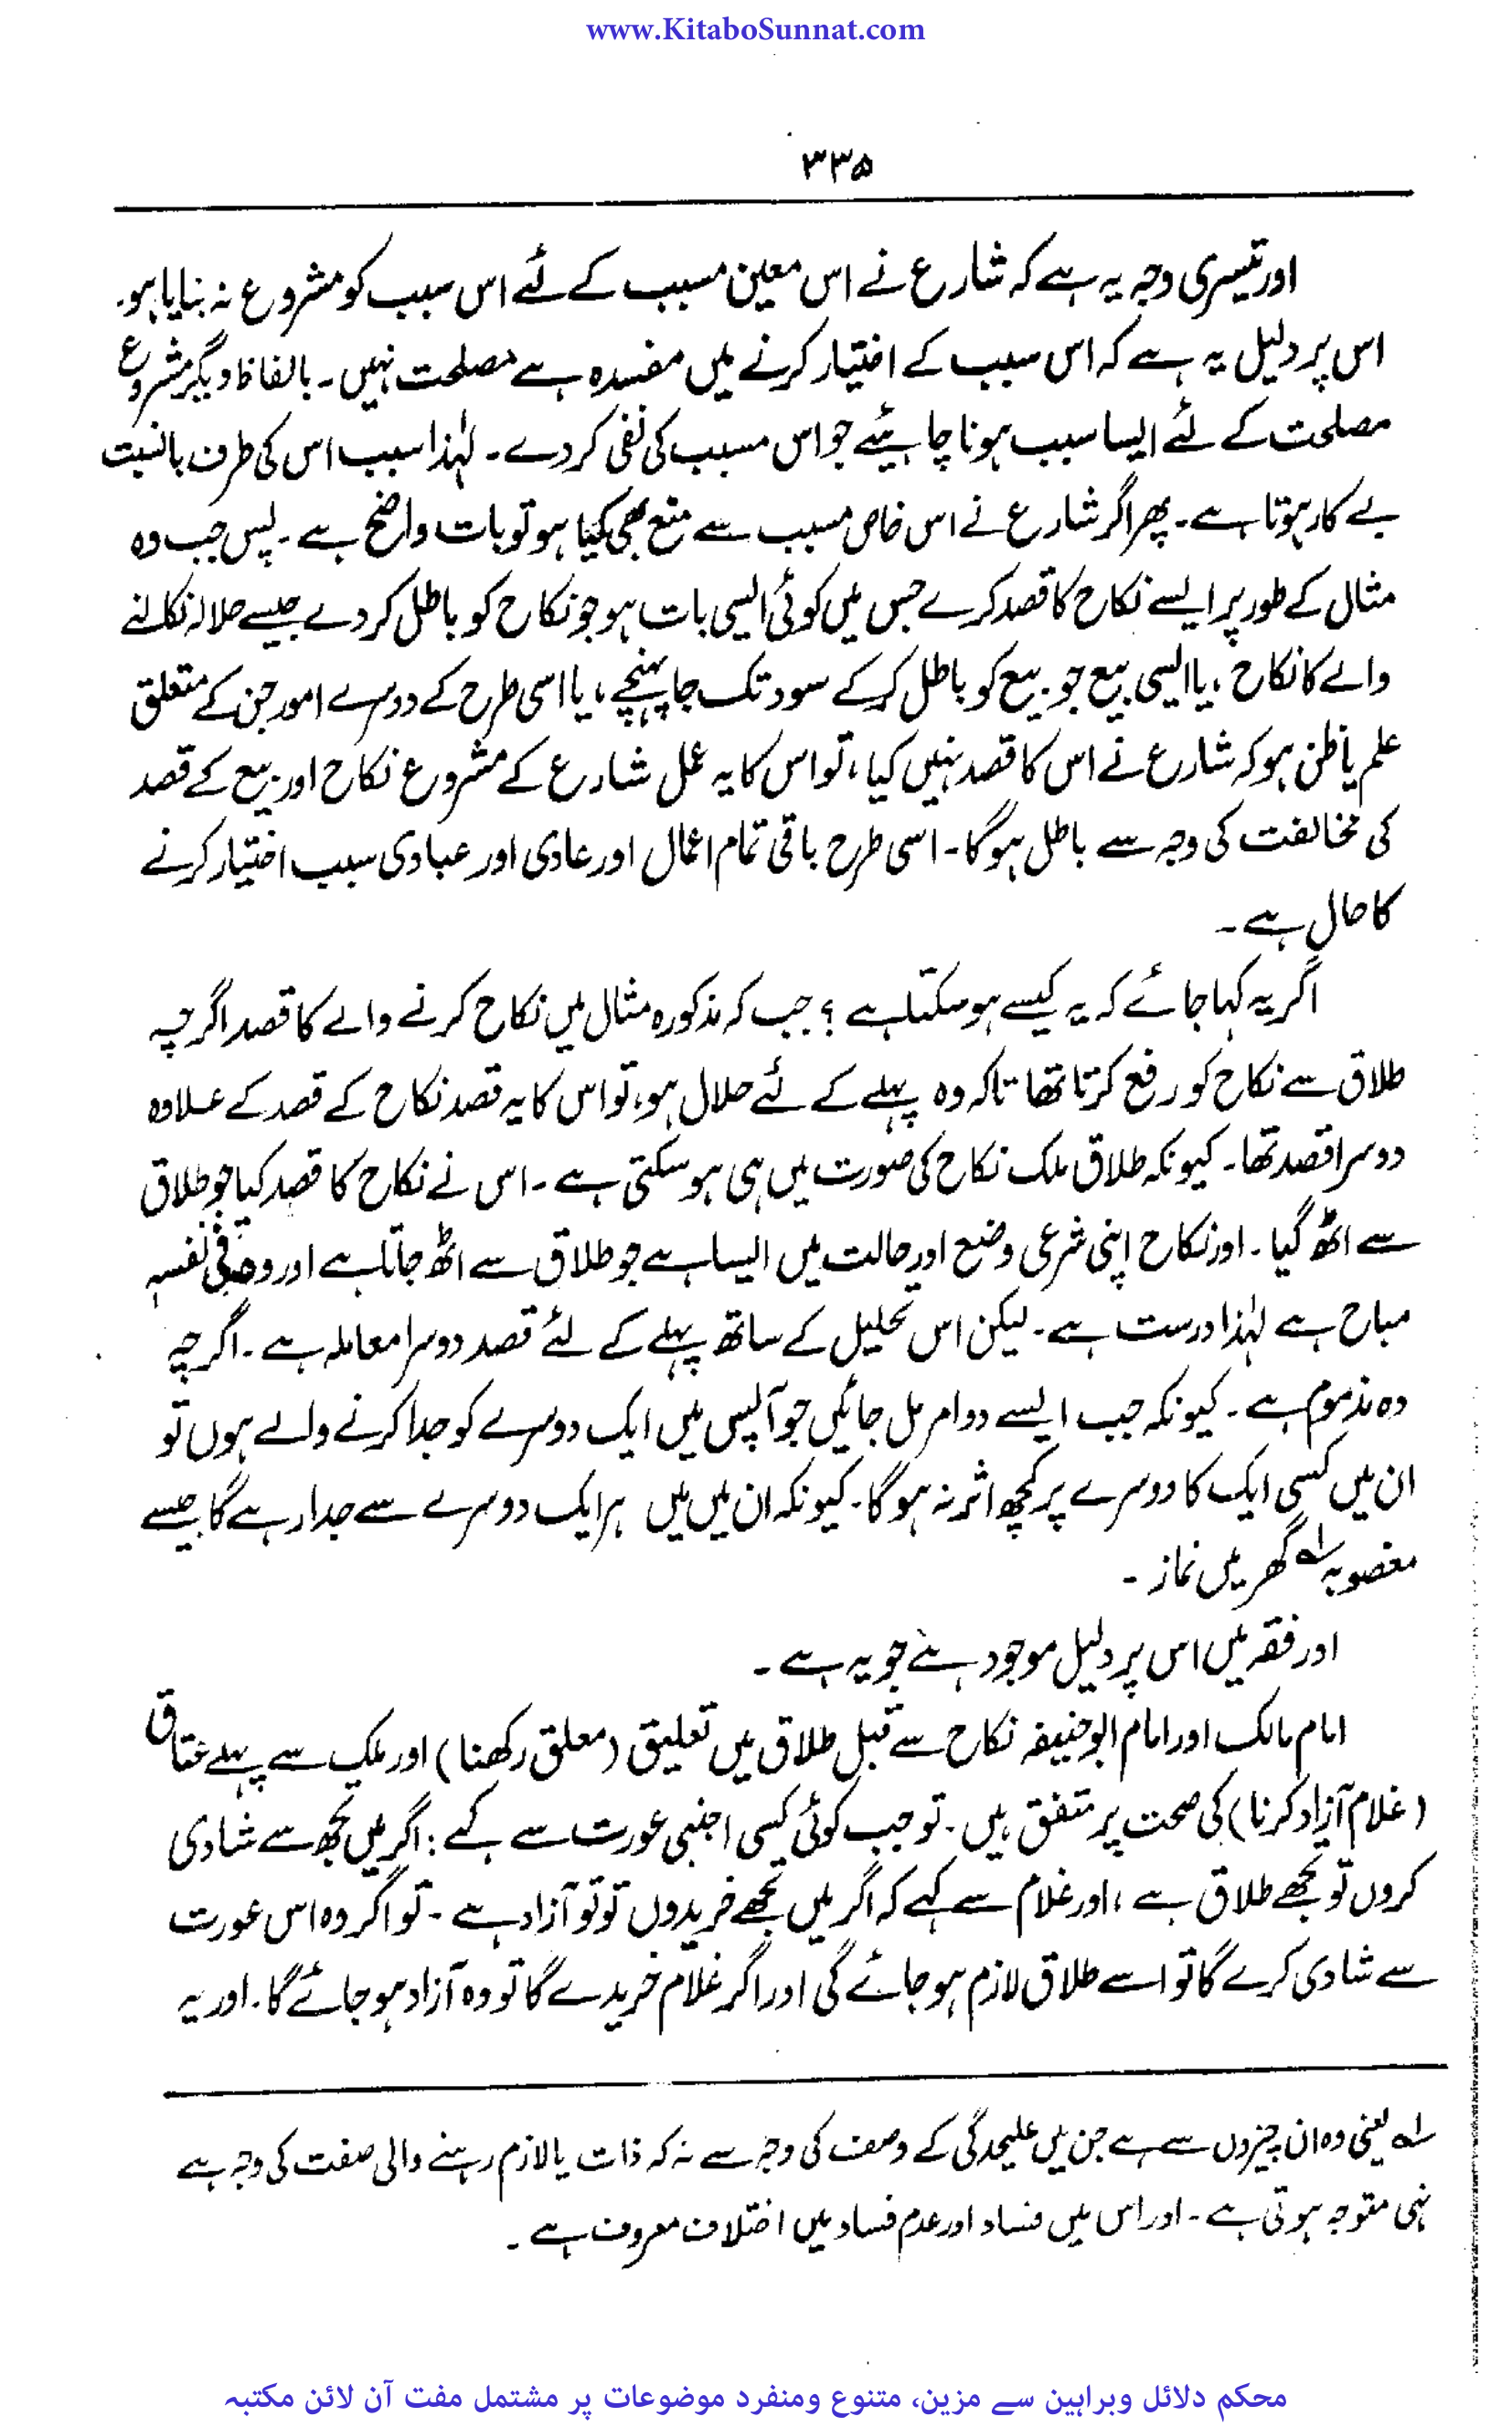 www.KitaboSunnat.com
۳۳۵
اور تیسری وجہ یہ ہے کہ شارع نے اس معین مسبب کے لئے اس سبب کو مشروع نہ بنایا ہو۔
اس پر دلیل یہ ہے کہ اس سبب کے اختیار کرنے میں مفسدہ ہے مصلحت نہیں۔ بالفاظ دیگر مشروع
مصلحت کے لئے ایسا سبب ہونا چاہیئے جو اس مسبب کی نفی کر دے۔ لہٰذا سبب اس کی طرف بالنسبت
بے کار ہوتا ہے۔ پھر اگر شارع نے اس خاص مسبب سے منع بھی کیا ہو تو بات واضح ہے۔ پس جب وہ
مثال کے طور پر ایسے نکاح کا قصد کرے جس میں کوئی ایسی بات ہو جو نکاح کو باطل کر دے جیسے حلالہ نکالنے
والے کا نکاح، یا ایسی بیع جو بیع کو باطل کر کے سود تک جا پہنچے، یا اسی طرح کے دوسرے امور جن کے متعلق
علم یا ظن ہو کہ شارع نے اس کا قصد نہیں کیا، تو اس کا یہ عمل شارع کے مشروع نکاح اور بیع کے قصد
کی مخالفت کی وجہ سے باطل ہو گا۔ اسی طرح باقی تمام اعمال اور عادی اور عبادی سبب اختیار کرنے
کا حال ہے۔
اگر یہ کہا جائے کہ یہ کیسے ہو سکتا ہے؟ جب کہ مذکورہ مثال میں نکاح کرنے والے کا قصد اگرچہ
طلاق سے نکاح کو رفع کرتا تھا تاکہ وہ پہلے کے لئے حلال ہو، تو اس کا یہ قصد نکاح کے قصد کے علاوہ
دوسرا قصد تھا۔ کیونکہ طلاق ملک نکاح کی صورت میں ہی ہو سکتی ہے۔ اس نے نکاح کا قصد کیا جو طلاق
سے اٹھ گیا۔ اور نکاح اپنی شرعی وضع اور حالت میں ایسا ہے جو طلاق سے اٹھ جاتا ہے اور وہ فی نفسہٖ
مباح ہے لہٰذا درست ہے۔ لیکن اس تحلیل کے ساتھ پہلے کے لئے قصد دوسرا معاملہ ہے۔ اگرچہ
وہ مذموم ہے۔ کیونکہ جب ایسے دو امر مل جائیں جو آپس میں ایک دوسرے کو جدا کرنے والے ہوں تو
ان میں کسی ایک کا دوسرے پر کچھ اثر نہ ہو گا۔ کیونکہ ان میں میں ہر ایک دوسرے سے جدا رہے گا جیسے
مغصوبہ لہ گھر میں نماز۔
اور فقہ میں اس پر دلیل موجود ہے جو یہ ہے۔
امام مالک اور امام ابو حنیفہ نکاح سے قبل طلاق میں تعلیق (معلق رکھنا) اور ملک سے پہلے عتاق
(غلام آزاد کرنا) کی صحت پر متفق ہیں۔ تو جب کوئی کسی اجنبی عورت سے کہے: اگر میں تجھ سے شادی
کروں تو تجھے طلاق ہے، اور غلام سے کہے کہ اگر میں تجھے خریدوں تو تو آزاد ہے۔ تو اگر وہ اس عورت
سے شادی کرے گا تو اسے طلاق لازم ہو جائے گی اور اگر غلام خریدے گا تو وہ آزاد ہو جائے گا۔ اور یہ
لہ یعنی وہ ان چیزوں سے ہے جن میں علیحدگی کے وصف کی وجہ سے نہ کہ ذات یا لازم رہنے والی صفت کی وجہ سے
نہی متوجہ ہوتی ہے۔ اور اس میں فساد اور عدم فساد میں اختلاف معروف ہے۔
محکم دلائل وبراہین سے مزین، متنوع ومنفرد موضوعات پر مشتمل مفت آن لائن مکتبہ